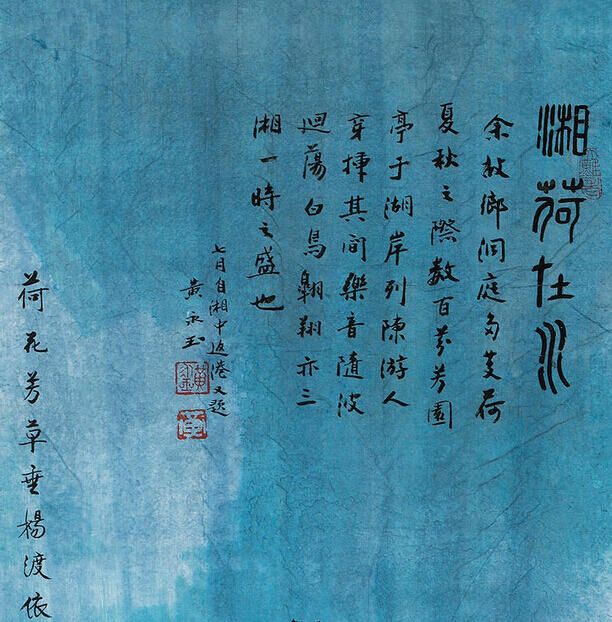 湘荷在水
余故鄉洞庭多芰荷
夏秋之際數百芬芳園
亭于湖岸列陳游人
穿揷其间樂音隨波
迴蕩白鳥翱翔亦三
湘一時之盛也
七月自湘中返港又題
黄永玉
荷花芳草垂楊渡依